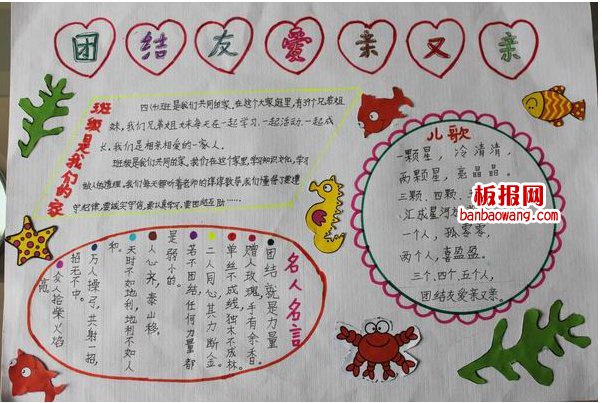 团结友爱亲又亲
班级是我们的家
四(1)班是我们共同的家,在这个大家庭里,有39个兄弟姐
妹,我们兄弟姐妹每天在一起学习,一起活动,一起成
长,我们是相亲相爱的一家人。
班级是我们共同的家,我们在这个家里,学习知识文化,学习
做人的道理,我们每天都听着老师的谆谆教导,我们懂得了要遵
守纪律,要诚实守信,要认真学习,要团结互助……
儿歌
一颗星,冷清清,
两颗星,亮晶晶。
三颗、四颗、
汇成星河
一个人,孤零零,
两个人,喜盈盈。
三个、四个、五个人,
团结友爱亲又亲。
板报网
banbaowang.com
名人名言
团结就是力量
赠人玫瑰,手有余香。
单丝不成线,独木不成林。
二人同心,其力断金。
若不团结,任何力量都
是弱小的。
人心齐,泰山移。
天时不如地利,地利不如人
和。
万人操弓,共射一招,
招无不中。
众人拾柴火焰
高